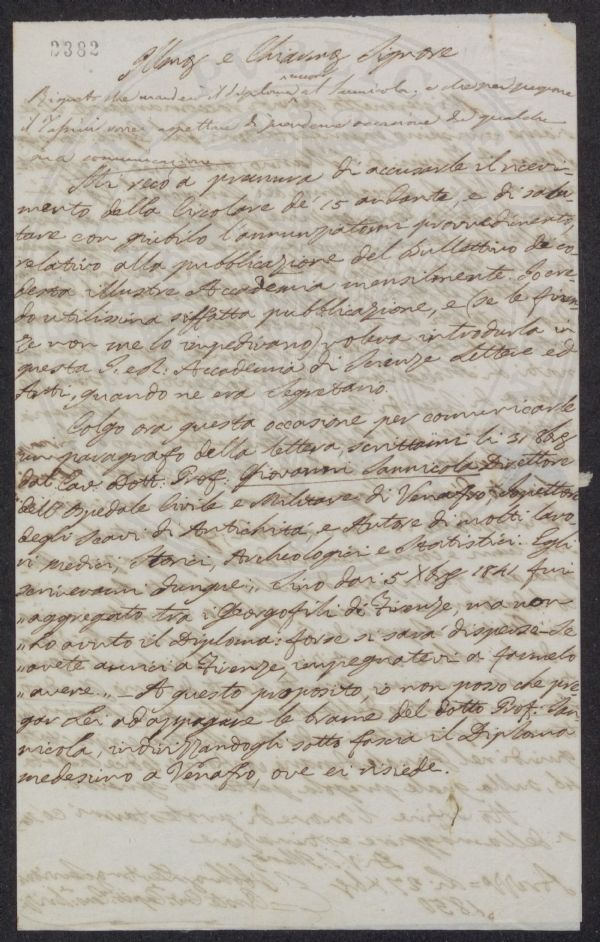 2382
Illmo e Chiarmo Signore
nuovo
Risposto che manderò il diploma al Sannicola, e che per
il Tafani vorrei aspettare di prendere occasione di qualche
sua comunicazione
Mi reco a premura di accusarle il ricevi-
mento della Circolare de' 15 andante, e di salu-
tare con giubilo l'annunziatomi provvedimento,
relativo alla pubblicazione del Bullettino di co-
desta illustre Accademia mensilmente. Io cre-
do utilissima siffatta pubblicazione, e (se le finan-
ze non me lo impedivano) voleva introdurla in
questa I. e R. Accademia di Scienze Lettere ed
Arti, quando ne era Segretario.
Colgo ora questa occasione per comunicarle
un paragrafo della lettera, scrittami li 31 8bre
dal Cav. Dott. Prof. Giovanni Sannicola Direttore
dell'Ospedale Civile e Militare di Venafro, Ispettore
degli Scavi di Antichità, e Autore di molti lavo-
ri medici, storici, Archeologici e Statistici. Egli
scrivevami dunque: „ Sino dai 5 Xbre 1841 fui
„ aggregato tra i Georgofili di Firenze, ma non
„ ho avuto il Diploma: forse si sarà disperso. Se
„ avete amici a Firenze impegnatevi a farmelo
„ avere „ — A questo proposito io non posso che pre-
gar Lei ad appagare le brame del dotto Prof. San-
nicola, indirizzandogli sotto fascia il Diploma
medesimo a Venafro, ove ei risiede.